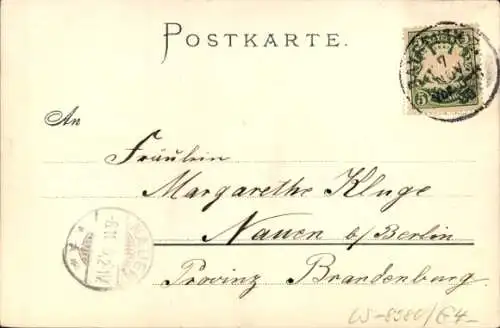 POSTKARTE.
7
NOV
5
An
Fräulein
Margarethe Kluge
Nauen b/Berlin
Provinz Brandenburg.
NAUEN